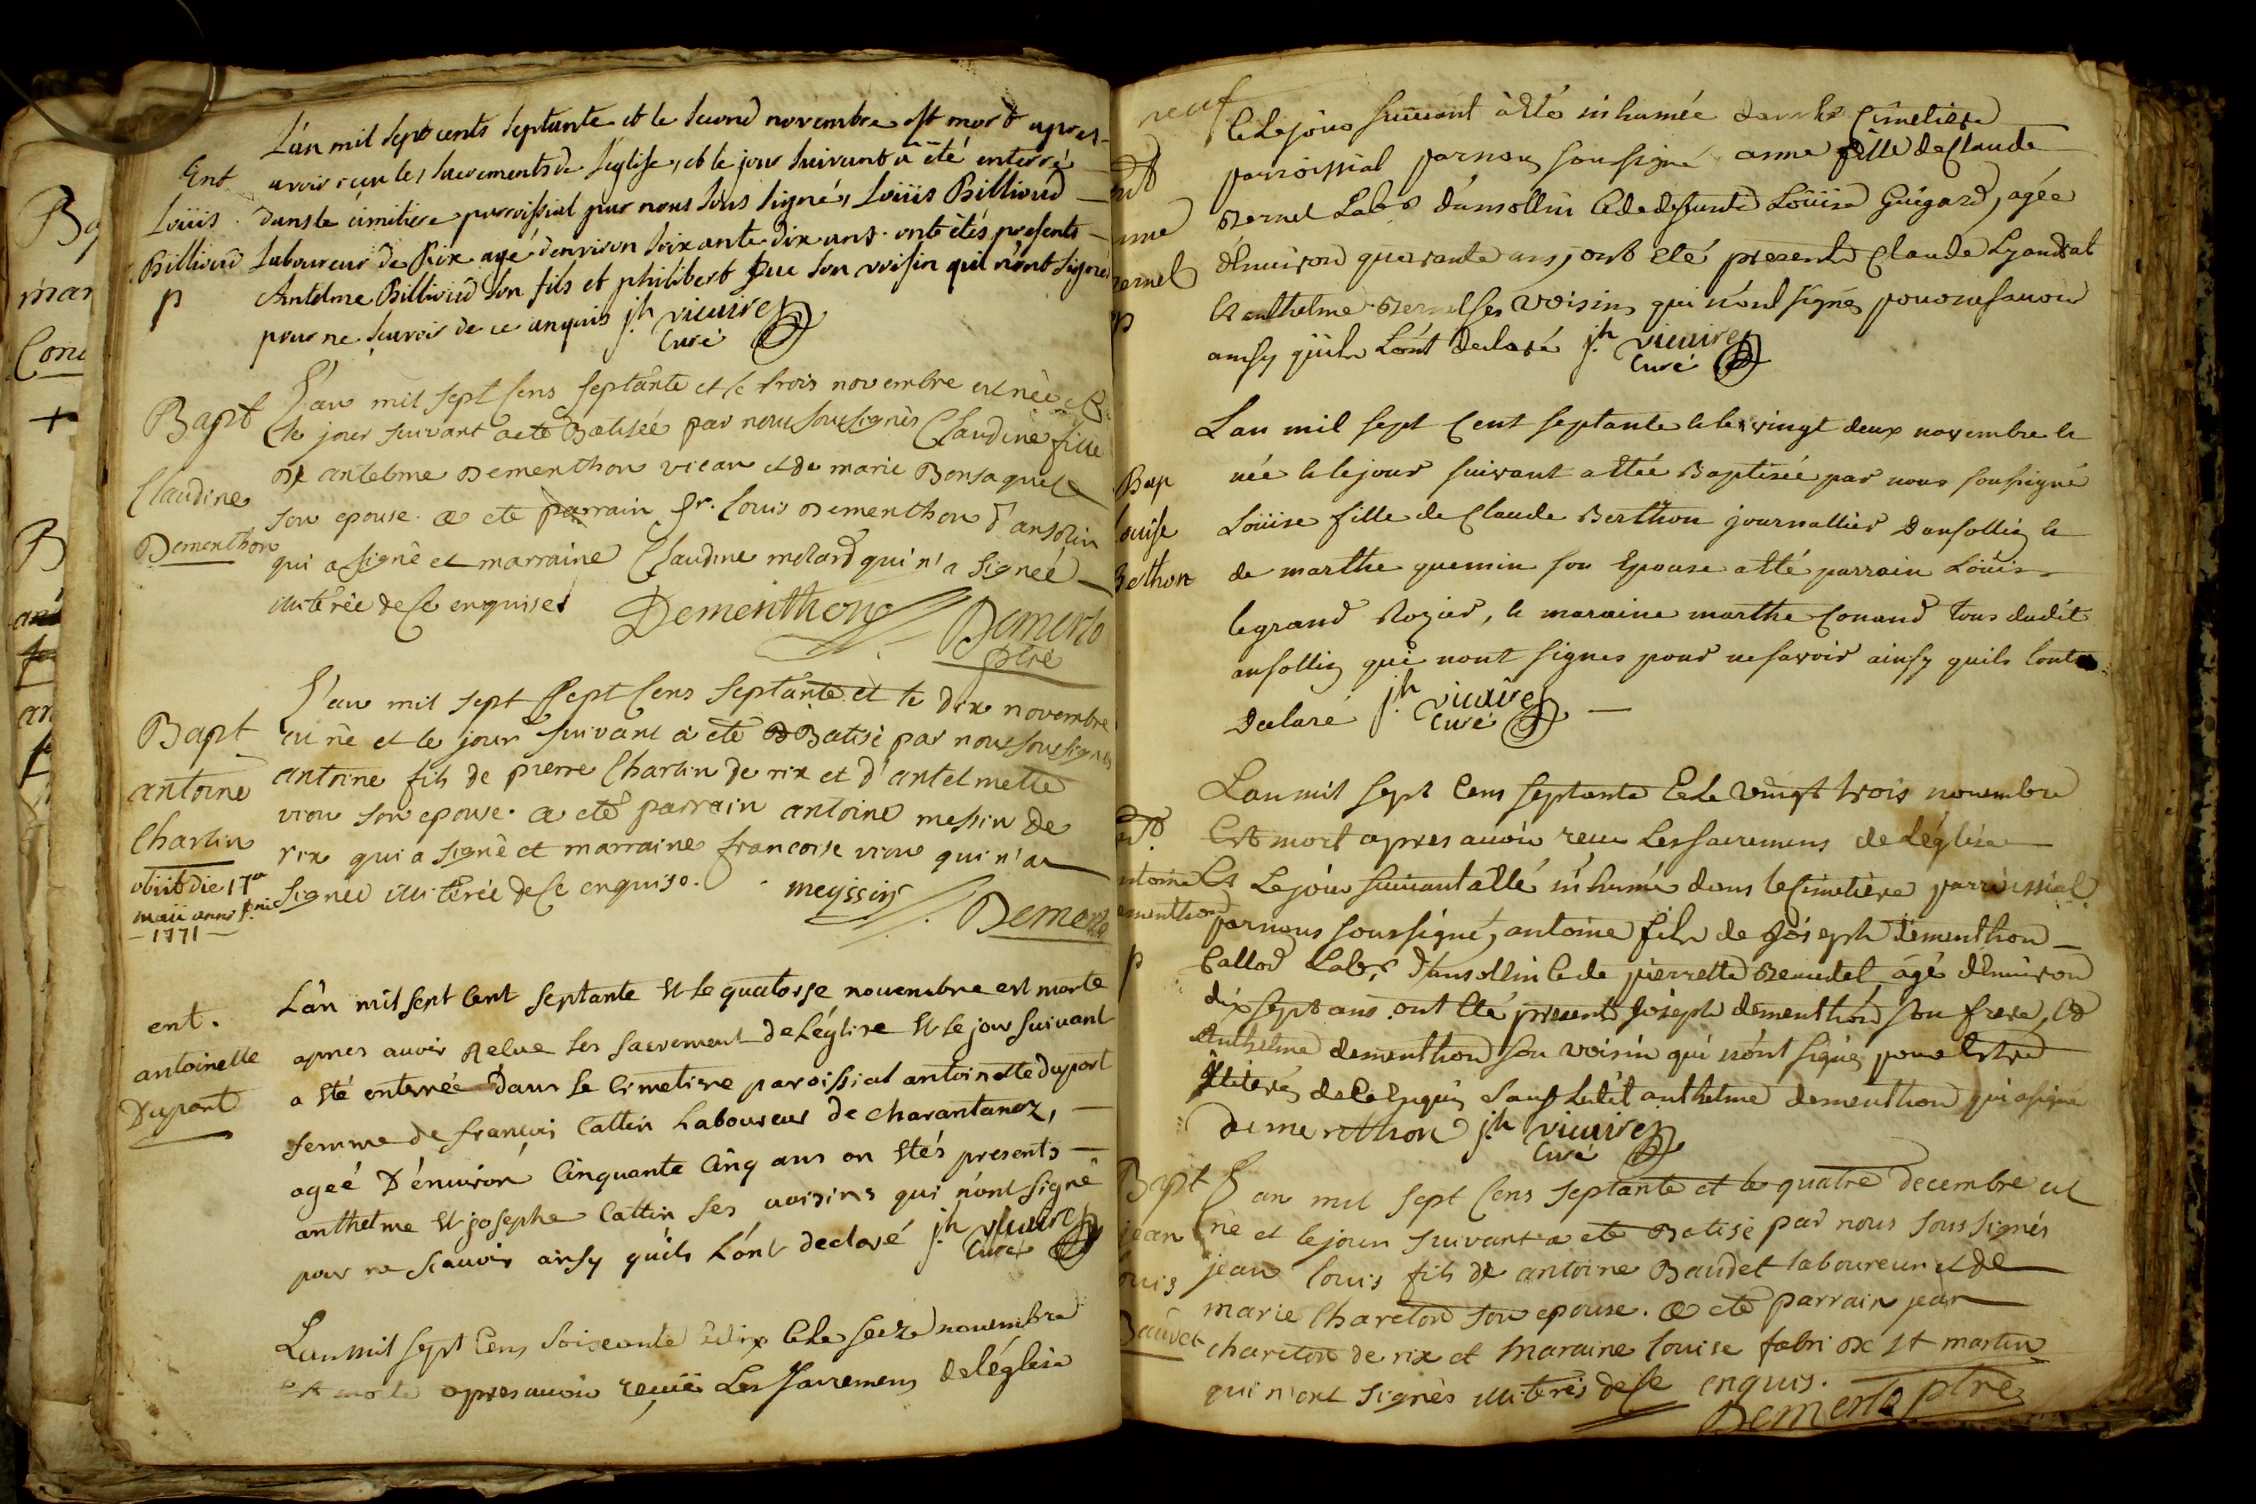 L'an mil sept cents septante et le second novembre est mort apres
avoir reçu les sacrements de l'eglise, et le jour suivant a été enterré
dans le cimitiere parroissial par nous sous signé, Loüis Billioud
laboureur de Rix agé d'environ soixante dix ans. ont étés presents
Antelme Billioud son fils et philibert son voisin qui n'ont signé
pour ne sçavoir de ce enquis jh vicaire
Curé
Ent
Loüis
Billioud
p
L'an mil sept cens septante et le trois novembre est née et
le jour suivant a eté Batisée par nous soussignés Claudine fille
de antelme Dementhon et de marie Bonjaquet
son epouse. a eté parrain sr. Louis Dementhon d'ansolin
qui a signé et marraine Claudine molard qui n'a signée
illiterée de ce enquise
Dementhon
Demerlo
ptre
Bapt
Claudine
Dementhon
L'an mil sept sept cens septante et le dix novembre
est né et le jour suivant a eté Batisé par nous soussignés
antoine fils de pierre Charlin de rix et d'antelmette
viou son epouse. a eté parrain antoine messin de
rix qui a signé et marraine francoise viou qui n'a
signee illiterée de ce enquise. meyssin
Demerlo
Bapt
antoine
Charlin
obiit die 17a
maii anni
1771
L'an mil sept cent septante et le quatorze novembre est morte
apres avoir Relue les sacrement de L'église et le jour suivant
a eté enterrée dans le Cimetiere paroissial antoinette duport
femme de francois Cattin Laboureur de charantanoz,
ageé D'énviron Cinquante Cinq ans on etés presents
anthelme et josephe Cattin ses voisins qui n'ont signé
pour ne scavoir ainsy qu'ils L'ónt declaré jh vicaire
Curé
ent.
antoinette
Duport
L'an mil sept Cens soixante et dix Et le seize novembre
Est morte apres avoir reçuë Les sacremens de l'église
neuf
Et le jour suivant à esté inhumée dans le Cimetiere
parroissial par nous soussigné anne fille de Claude
Bernel Labr d'ansollin et de deffunte Loüise Guigard, agée
d'énuiron quarante ans, ont eté presents Claude Lyandrat
et anthelme Bernel ses voisins qui n'ont signés pour ne savoir
ainsy qu'ils L'ónt declaré jh vicaire
Curé
L'an mil sept Cent septante et le vingt deux novembre est
née et le jour suivant a etée Baptisée par nous soussigné
Loüise fille de Claude Berthon journallier Dansollin et
de marthe guemin son Epouse a eté parrain Loüis
legrand Rozier, et maraine marthe Conand tous dudit
ansollin qui n'ont signes pour ne savoir ainsy quils l'ont
Declaré jh vicaire
Curé
Bap
Louise
Bethon
L'an mil sept Cens septante Et le vingt trois novembre
Est mort apres avoir reçu Les sacremens de L'église
Et Le jour suivant a esté inhumé dans le Cimetière parroissial
par nous soussigné, antoine fils de Joseph dementhon
Ballod Labr. d'ansollin Et de pierrette Beaudet, agé d'énuiron
dix sept ans. ont Eté present Joseph dementhon son frere, Et
Anthelme dementhon son voisin qui n'ónt signés pour Estre
illiterés de Ce Enquis sauf Ledit anthelme dementhon qui a signé
dementhon jh vicaire
Curé
L'an mil sept Cens septante et le quatre decembre est
né et le jour suivant a eté Batisé par nous soussignés
jean louis fils de antoine Baudet laboureur et de
marie Chareton son epouse. a eté parrain jean
chareton de rix et maraine louise fabri de st martin
qui n'ont signés illiterés de ce enquis.
Demerlo ptre
Bapt
jean
louis
Baudet